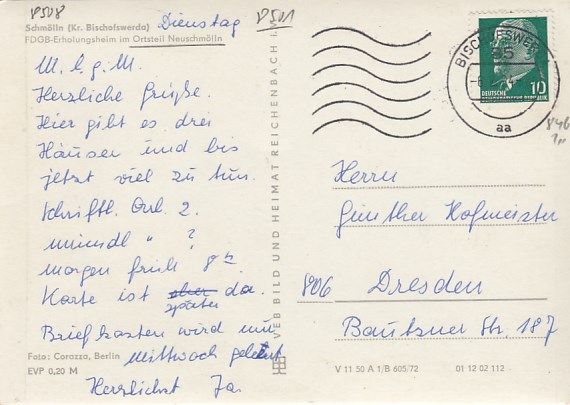 8508
Dienstag
8501
Schmölln (Kr. Bischofswerda)
FDGB-Erholungsheim im Ortsteil Neuschmölln
M. l. g. M.
Herzliche Grüße.
Hier gibt es drei
Häuser und bis
jetzt viel zu tun.
Schriftl. Orl. 2.
mündl " ?
morgen früh 8 h
Karte ist eher da.
später
Briefkasten wird nur
Mittwoch geleert
Herzlichst Ja.
Foto: Corazza, Berlin
EVP 0,20 M
VEB BILD UND HEIMAT REICHENBACH I.
BISCHOFSWERDA
aa
DEUTSCHE
DEMOKRATISCHE REPUBLIK
10
Herrn
Günther Hofmeister
806 Dresden
Bautzner Str. 187
V 11 50 A 1/B 605/72 01 12 02 112